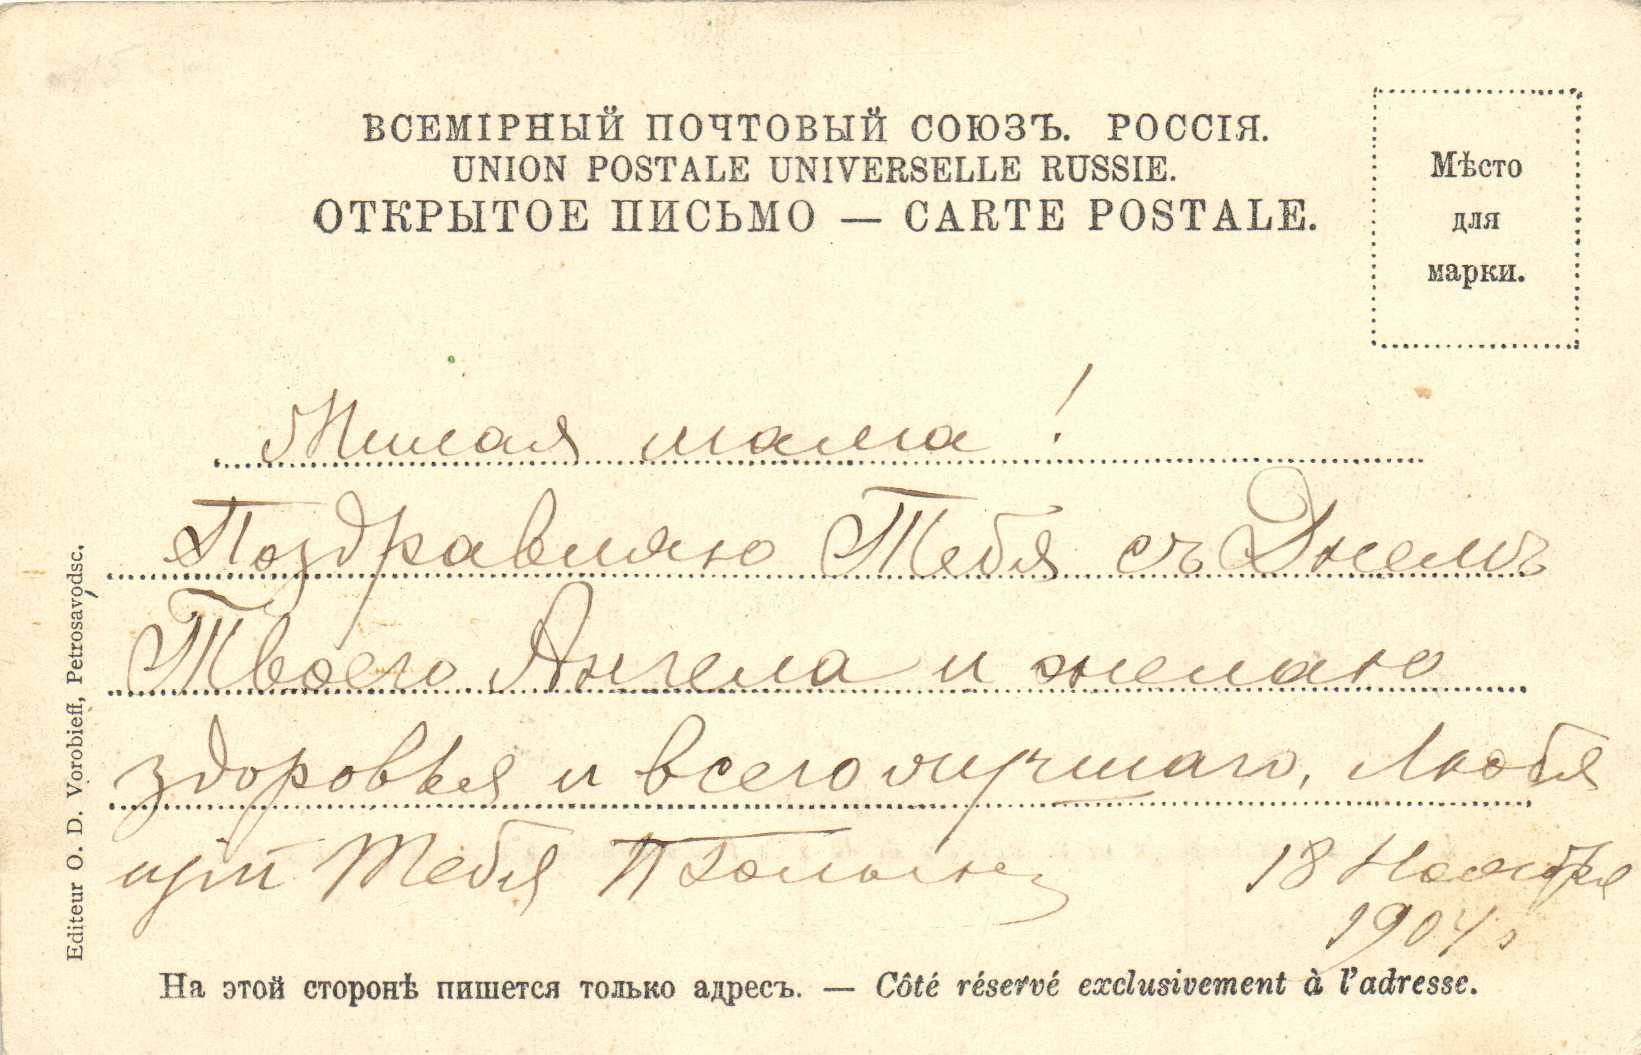 ВСЕМІРНЫЙ ПОЧТОВЫЙ СОЮЗЪ. РОССІЯ.
UNION POSTALE UNIVERSELLE RUSSIE.
ОТКРЫТОЕ ПИСЬМО — CARTE POSTALE.
Мѣсто
для
марки.
Милая мама!
Поздравляю Тебя съ Днемъ
Твоего Ангела и желаю
здоровья и всего лучшаго, Любя
Тебя
18 Ноября
1904 г.
На этой сторонѣ пишется только адресъ. — Côté réservé exclusivement à l'adresse.
Editeur O. D. Vorobieff, Petrosavodsc.